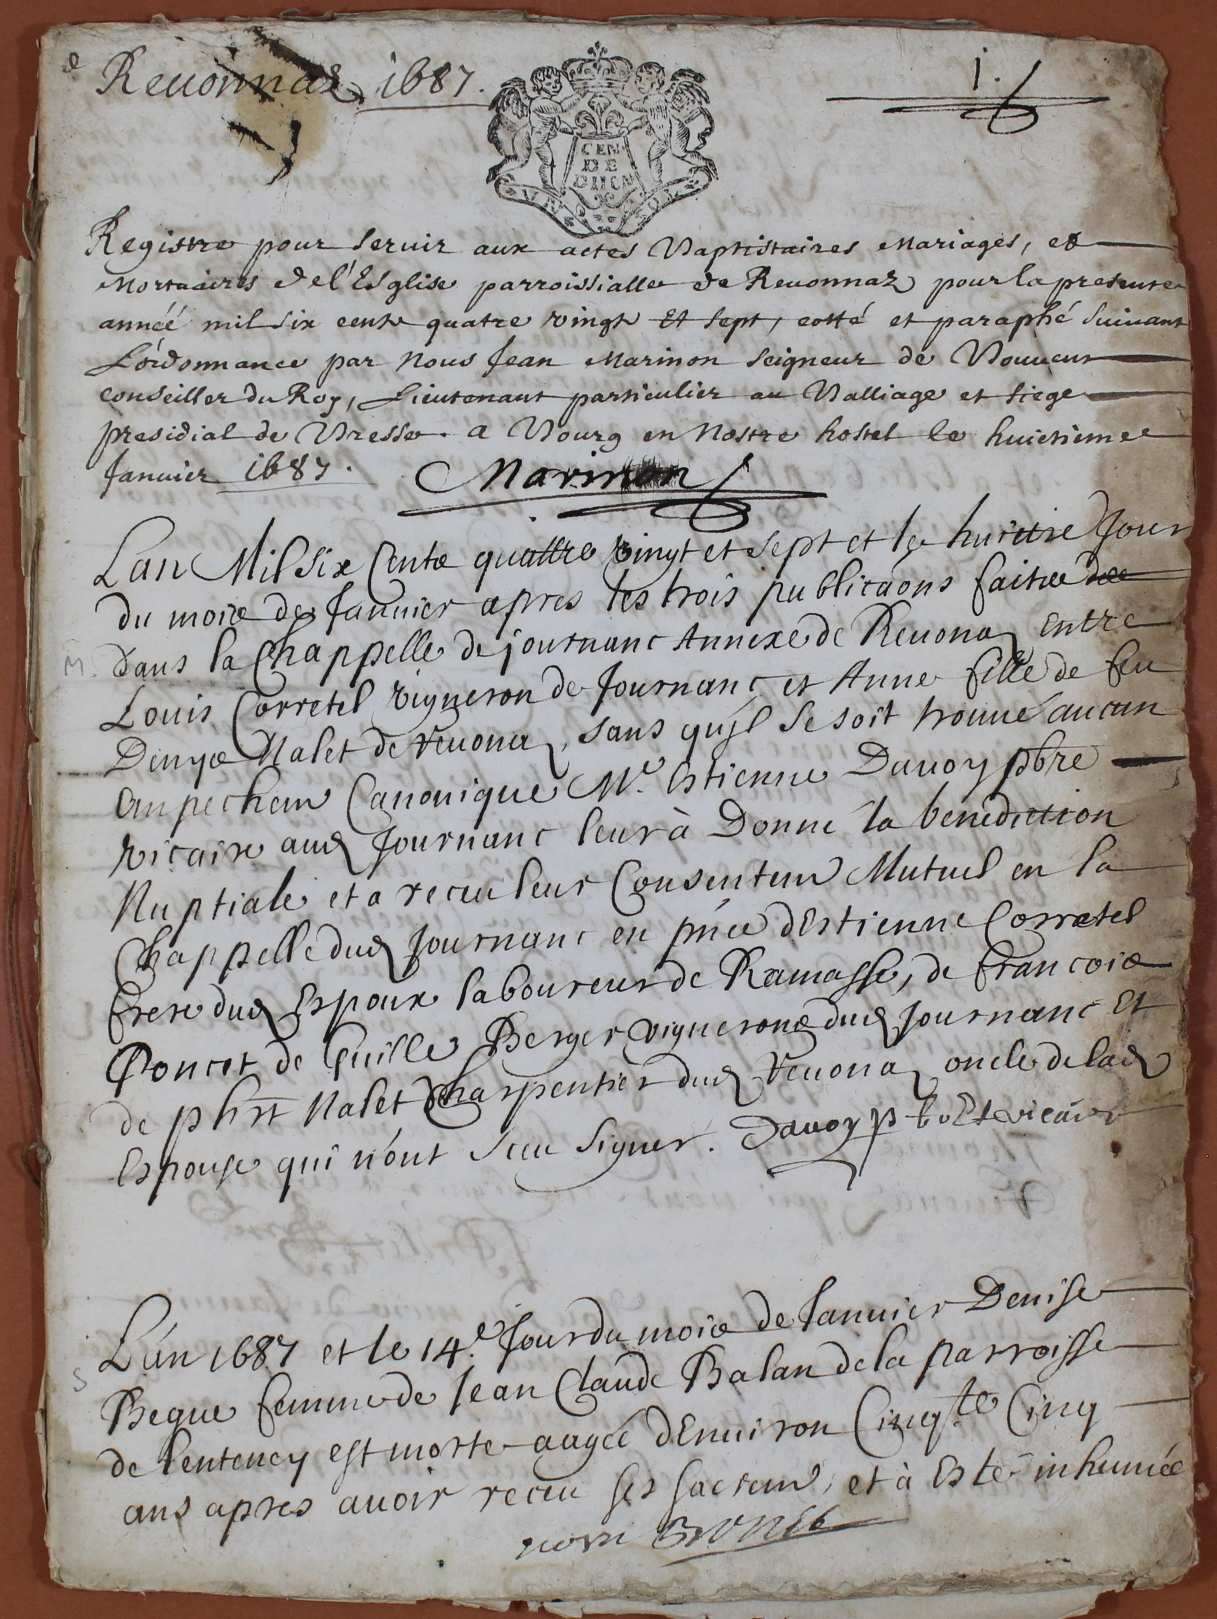 Reuonnaz 1687.
1.
GEN
DE
DIION
Registre pour seruir aux actes Baptistaires Mariages, et
Mortuaires de l'Esglise parroissialle de Reuonnaz pour la presente
annéé mil six cents quatre vingt Et sept, cotté et paraphé suiuant
L'ordonnance par Nous Jean Marinon seigneur de
Conseiller du Roy, Lieutenant particulier au Balliage et siege
presidial de Bresse. a Bourg en Nostre hostel le huictieme
Januier 1687.
Marinon
Lan Mil six Cents quattre vingt et sept et le huictie Jour
du mois de Januier apres les trois publicaons faites
Dans la Chappelle de journanc Annexe de Reuona entre
Louis Corretel vigneron de Journanc et Anne fille de feu
Denys Nalet de reuona, sans quil se soit trouué aucun
Anpechem Canonique Mr. Estienne Dauoy pbre
vicaire aud Journanc leur à Donné la benediction
Nuptiale et a receu leur Consentem Mutuel en la
Chappelle dud Journanc en pnce dEstienne Corretel
frere dud Espoux laboureur de Ramasse, de francois
Poncet de Guille Berger vignerons dud Journanc Et
de phrt Nalet Charpentier dud reuona oncle de lad
Espouse qui n'ont sceu signer. Dauoy pbre vicaire
L'an 1687 et le 14.e Jour du mois de Januier Denise
Begue femme de Jean Claude Balan de la parroisse
de lenteney est morte aagéé dEnuiron Cinqte Cinq
ans apres auoir receu ses sacrem, et à Esté inhumée